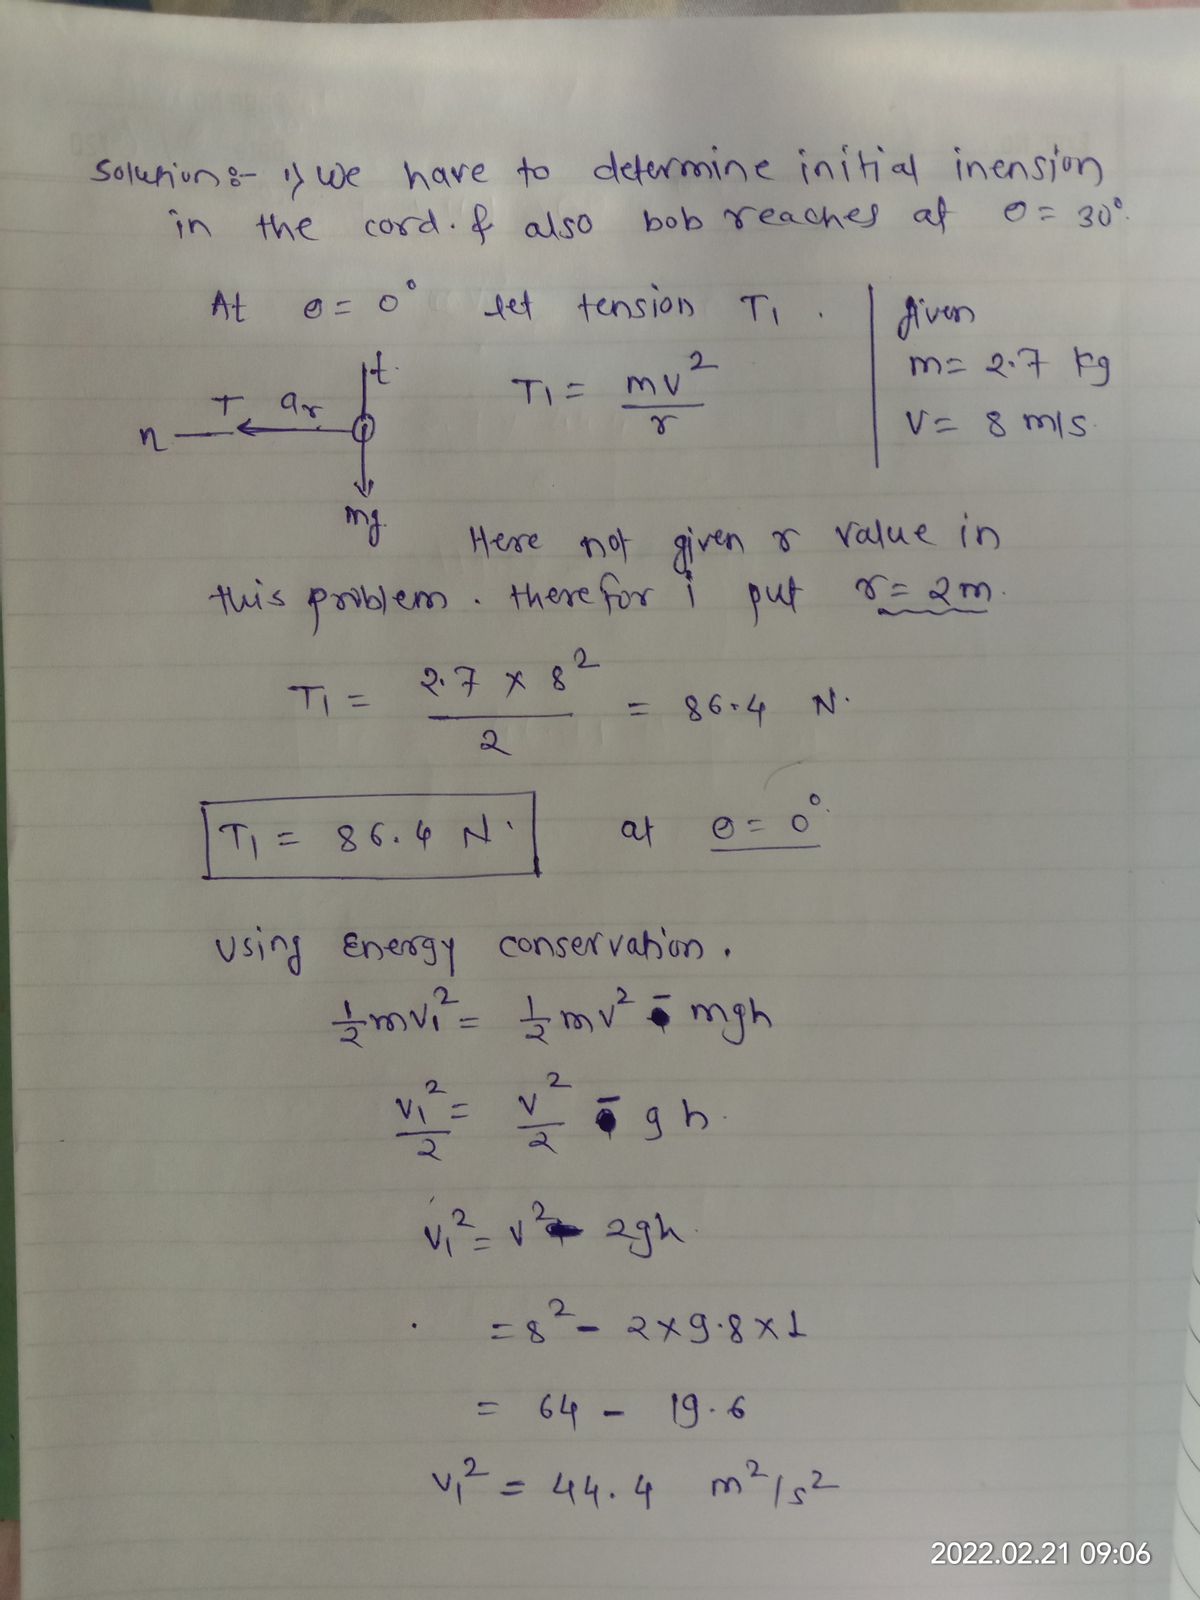 Solution:- 1) We have to determine initial inension
in the cord. & also bob reaches at θ = 30°.
At θ = 0° let tension T₁ .
given
m = 2.7 kg
v = 8 m/s.
t.
T ar
n
mg.
T₁ = mv²/r
Here not given r value in
this problem. therefor i put r = 2m.
T₁ = 2.7 × 8²/2 = 86.4 N.
T₁ = 86.4 N. at θ = 0°
using Energy conservation.
½mv₁² = ½mv² - mgh
v₁²/2 = v²/2 - gh.
v₁² = v² - 2gh.
= 8² - 2×9.8×1
= 64 - 19.6
v₁² = 44.4 m²/s²
2022.02.21 09:06